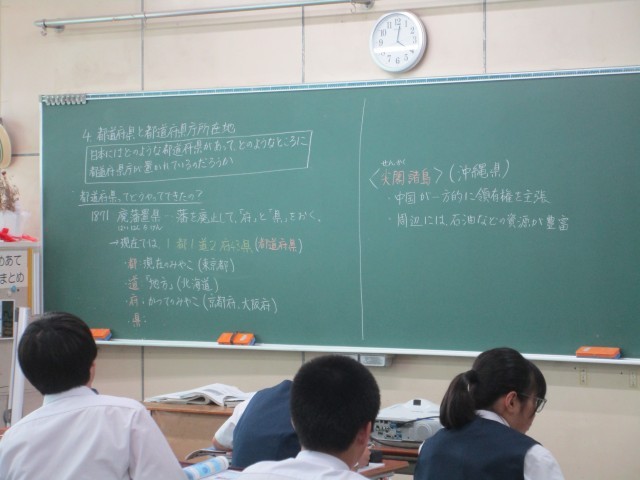 4. 都道府県と都道府県庁所在地
日本にはどのような都道府県があって、どのようなところに
都道府県庁が置かれているのだろうか
都道府県ってどうやってできたの?
1871 廃藩置県…藩を廃止して、「府」と「県」をおく。
はいはんちけん
→現在では 1都1道2府43県(都道府県)
・都:現在のみやこ(東京都)
・道:「地方」(北海道)
・府:かつてのみやこ(京都府、大阪府)
・県:
せんかく
〈尖閣諸島〉(沖縄県)
・中国が一方的に領有権を主張
・周辺には石油などの資源が豊富
めあて
まとめ